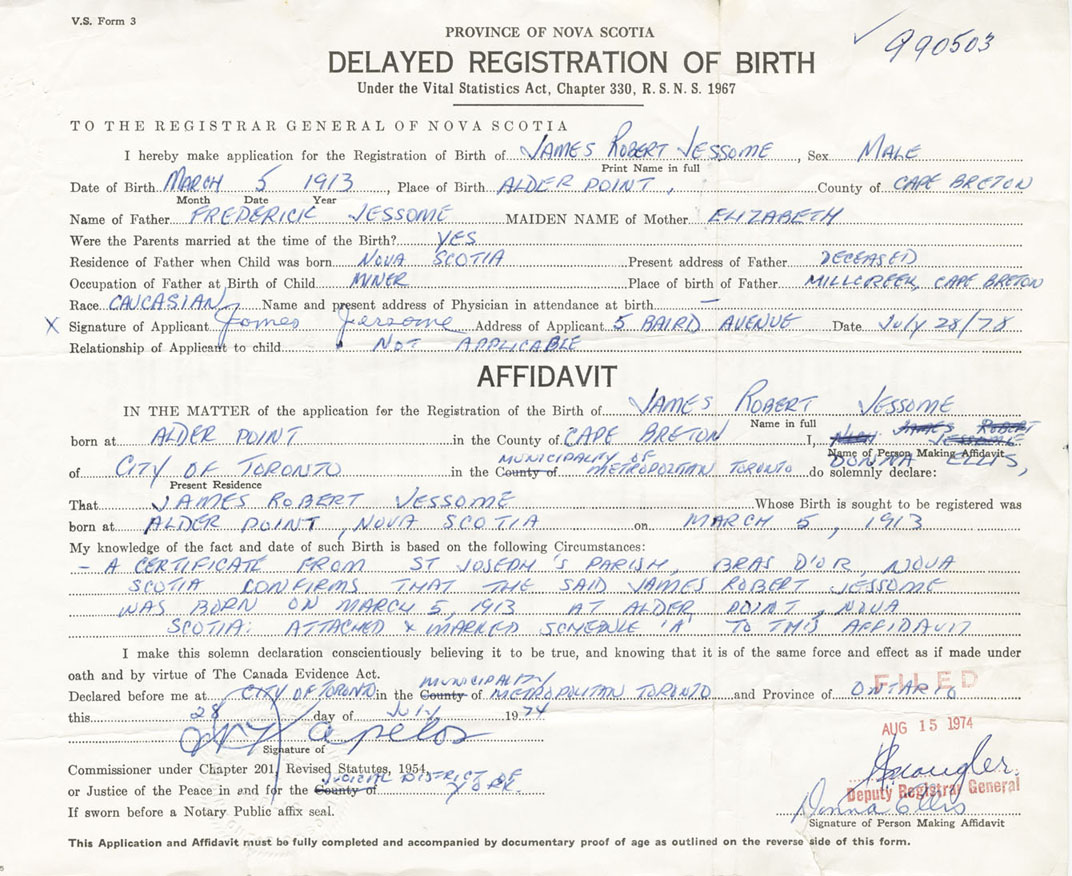 V.S. Form 3
✓ 990503
PROVINCE OF NOVA SCOTIA
DELAYED REGISTRATION OF BIRTH
Under the Vital Statistics Act, Chapter 330, R.S.N.S. 1967
TO THE REGISTRAR GENERAL OF NOVA SCOTIA
I hereby make application for the Registration of Birth of JAMES ROBERT JESSOME, Sex MALE
Print Name in full
Date of Birth MARCH 5 1913, Place of Birth ALDER POINT, County of CAPE BRETON
Month Date Year
Name of Father FREDERICK JESSOME MAIDEN NAME of Mother ELIZABETH
Were the Parents married at the time of the Birth? YES
Residence of Father when Child was born NOVA SCOTIA Present address of Father DECEASED
Occupation of Father at Birth of Child MINER Place of birth of Father MILLCREEK, CAPE BRETON
Race CAUCASIAN Name and present address of Physician in attendance at birth —
X Signature of Applicant James Jessome Address of Applicant 5 BAIRD AVENUE Date July 28/78
Relationship of Applicant to child NOT APPLICABLE
AFFIDAVIT
IN THE MATTER of the application for the Registration of the Birth of JAMES ROBERT JESSOME
Name in full
born at ALDER POINT in the County of CAPE BRETON I, JAMES ROBERT JESSOME
Name of Person Making Affidavit
of CITY OF TORONTO in the County of MUNICIPALITY OF METROPOLITAN TORONTO DONNA ELLIS, do solemnly declare:
Present Residence
That JAMES ROBERT JESSOME Whose Birth is sought to be registered was
born at ALDER POINT, NOVA SCOTIA on MARCH 5, 1913
My knowledge of the fact and date of such Birth is based on the following Circumstances:
- A CERTIFICATE FROM ST JOSEPH'S PARISH, BRAS D'OR, NOVA
SCOTIA CONFIRMS THAT THE SAID JAMES ROBERT JESSOME
WAS BORN ON MARCH 5, 1913 AT ALDER POINT, NOVA
SCOTIA: ATTACHED & MARKED SCHEDULE 'A' TO THIS AFFIDAVIT
I make this solemn declaration conscientiously believing it to be true, and knowing that it is of the same force and effect as if made under
oath and by virtue of The Canada Evidence Act.
FILED
Declared before me at CITY OF TORONTO in the County MUNICIPALITY of METROPOLITAN TORONTO and Province of ONTARIO
this 28 day of July 1974
AUG 15 1974
Signature of
Commissioner under Chapter 201, Revised Statutes, 1954,
or Justice of the Peace in and for the County of JUDICIAL DISTRICT OF YORK
Deputy Registrar General
If sworn before a Notary Public affix seal.
Donna Ellis
Signature of Person Making Affidavit
This Application and Affidavit must be fully completed and accompanied by documentary proof of age as outlined on the reverse side of this form.